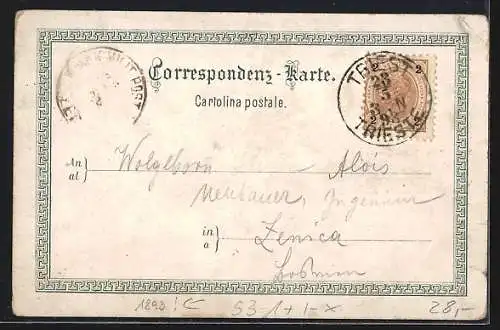 K. UND K. MILIT. POST
Correspondenz - Karte.
Cartolina postale.
2
TRIEST
TRIESTE
An
al
Wolgeborn Alois
Neubauer, Ingenieur
in
a
Zenica
Bosnien
1898 ! C 53-1+1-x 28,-